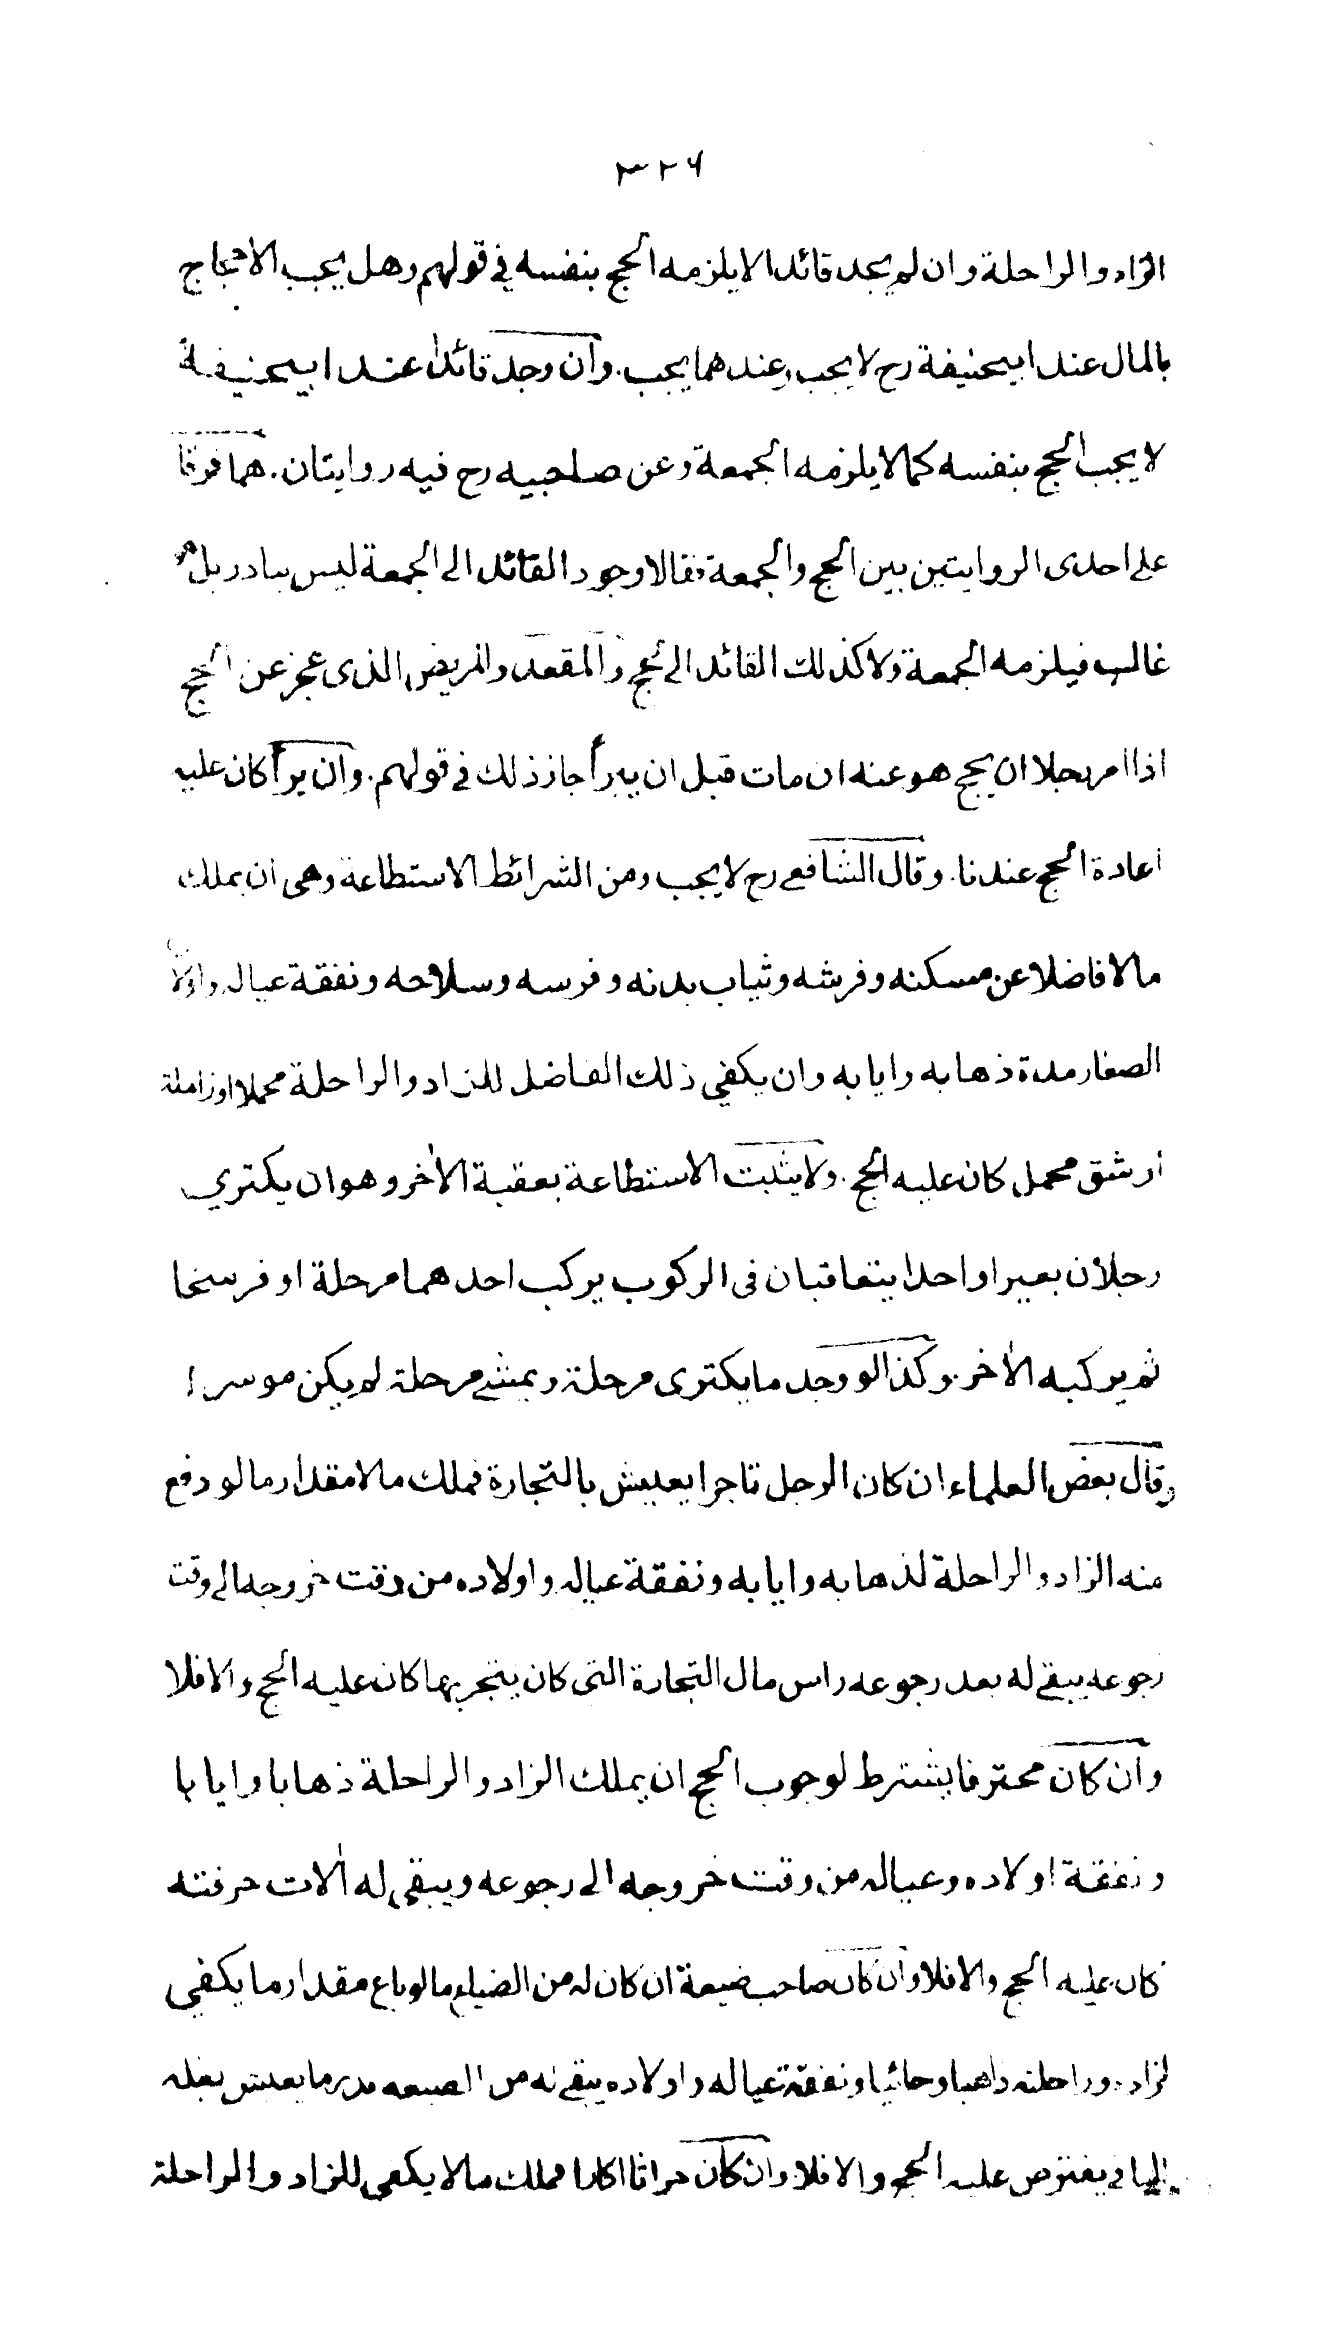 ٣٢٦
الزاد والراحلة وان لم يجد قائدا لا يلزمه الحج بنفسه في قولهم وهل يجب الاحجاج
بالمال عند ابيحنيفة رح لا يجب وعندهما يجب. وان وجد قائدا عند ابيحنيفة
لا يجب الحج بنفسه كما لا يلزمه الجمعة وعن صاحبيه رح فيه روايتان. هما فرقا
على احدى الروايتين بين الحج والجمعة فقالا وجود القائد الى الجمعة ليس بنادر بل هو
غالب فيلزمه الجمعة ولا كذلك القائد الى الحج والمقعد والمريض الذى عجز عن الحج
اذا امر رجلا ان يحج هو عنه ان مات قبل ان يبرأ جاز ذلك فى قولهم. وان برأ كان عليه
اعادة الحج عندنا. وقال الشافعي رح لا يجب ومن الشرائط الاستطاعة وهى ان يملك
مالا فاضلا عن مسكنه وفرشه وثياب بدنه وفرسه وسلاحه ونفقة عياله واولاده
الصغار مدة ذهابه وايابه وان يكفي ذلك الفاضل للزاد والراحلة محملا او زاملة
او شق محمل كان عليه الحج. ولا يثبت الاستطاعة بعقبة الاٰخر وهو ان يكتري
رجلان بعيرا واحدا يتعاقبان فى الركوب يركب احدهما مرحلة او فرسخا
ثم يركبه الاٰخر. وكذا لو وجد ما يكترى مرحلة ويمشے مرحلة لم يكن موسرا
وقال بعض العلماء ان كان الرجل تاجرا يعيش بالتجارة فملك مالا مقدار ما لو دفع
منه الزاد والراحلة لذهابه وايابه ونفقة عياله واولاده من وقت خروجه الى وقت
رجوعه يبقے له بعد رجوعه راس مال التجارة التى كان يتجر بها كان عليه الحج والا فلا
وان كان محترفا يشترط لوجوب الحج ان يملك الزاد والراحلة ذهابا وايابا
ونفقة اولاده وعياله من وقت خروجه الى رجوعه ويبقى له اٰلات حرفته
كان عليه الحج والا فلا وان كان صاحب ضيعة ان كان له من الضياع ما لو باع مقدار ما يكفي
لزاده وراحلته ذاهبا وجائيا ونفقة عياله واولاده يبقے له من الضيعه قدر ما يعيش بغله
الباقى يفترض عليه الحج والا فلا وان كان حراثا اكارا فملك مالا يكفي للزاد والراحلة